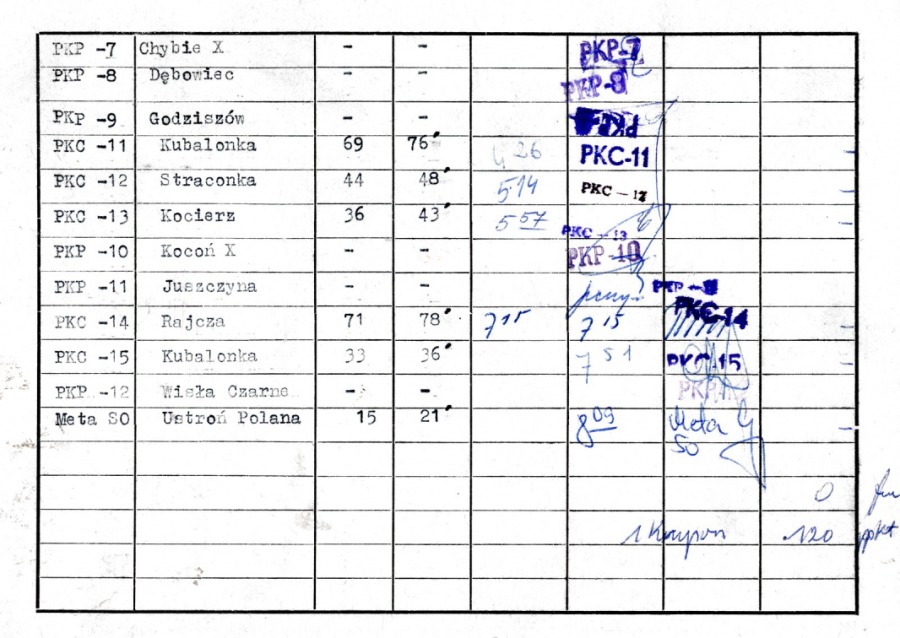 PKP -7 Chybie X - - PKP-7
PKP -8 Dębowiec - - PKP-8
PKP -9 Godziszów - - PKP
PKC -11 Kubalonka 69 76' 26 PKC-11 -
PKC -12 Straconka 44 48' 5 14 PKC - 12 -
PKC -13 Kocierz 36 43' 5 57 PKC - 13 -
PKP -10 Kocoń X - - PKP-10
PKP -11 Juszczyna - - PKP -11
PKC -14 Rajcza 71 78' 7 15 7 15 PKC-14 -
PKC -15 Kubalonka 33 36' 7 51 PKC-15 -
PKP -12 Wisła Czarne - - PKP
Meta SO Ustroń Polana 15 21' 8 09 Meta SO -
0
1 Kupon 120 ppkt